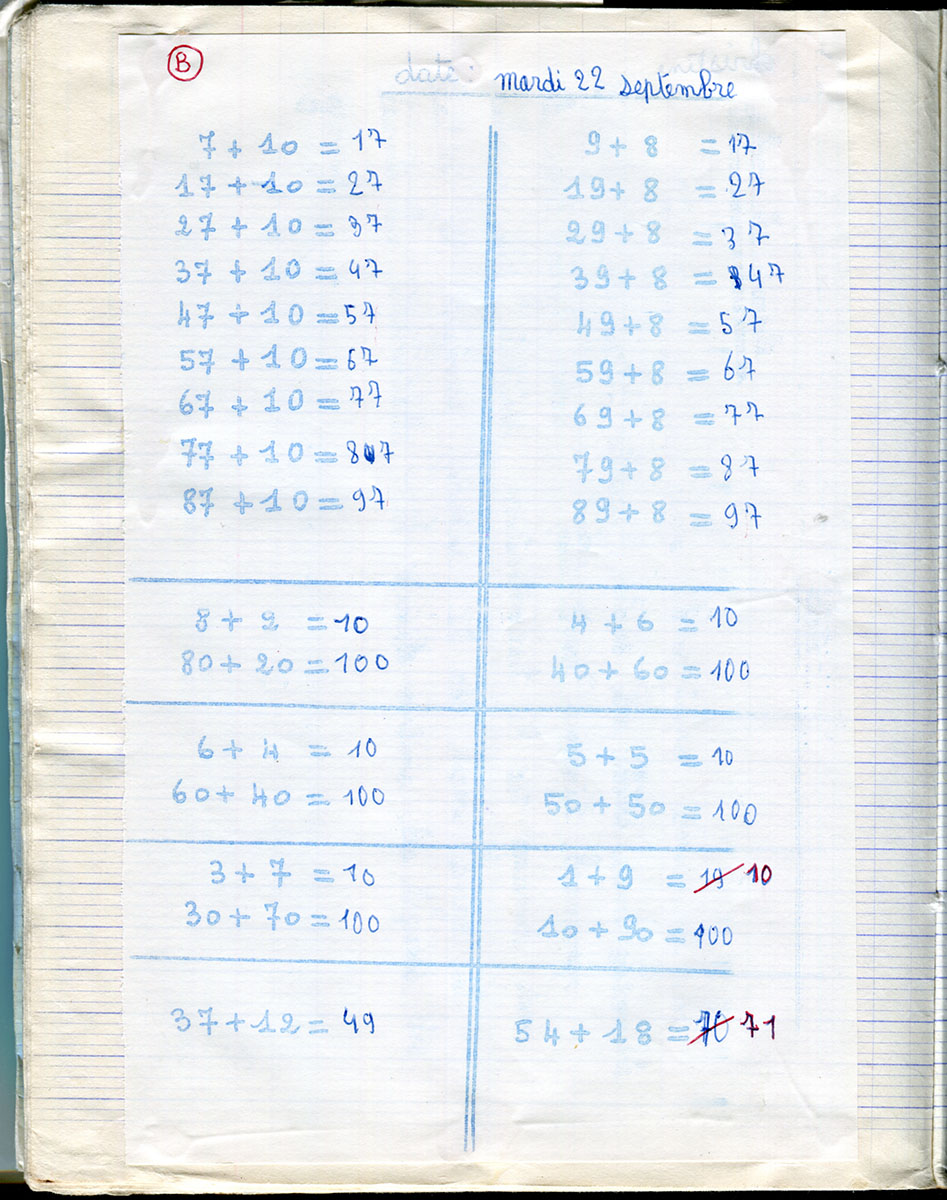 B
date: mardi 22 septembre
7 + 10 = 17
17 + 10 = 27
27 + 10 = 37
37 + 10 = 47
47 + 10 = 57
57 + 10 = 67
67 + 10 = 77
77 + 10 = 87
87 + 10 = 97
9 + 8 = 17
19 + 8 = 27
29 + 8 = 37
39 + 8 = 47
49 + 8 = 57
59 + 8 = 67
69 + 8 = 77
79 + 8 = 87
89 + 8 = 97
8 + 2 = 10
80 + 20 = 100
4 + 6 = 10
40 + 60 = 100
6 + 4 = 10
60 + 40 = 100
5 + 5 = 10
50 + 50 = 100
3 + 7 = 10
30 + 70 = 100
1 + 9 = 19 10
10 + 90 = 100
37 + 12 = 49
54 + 18 = 71